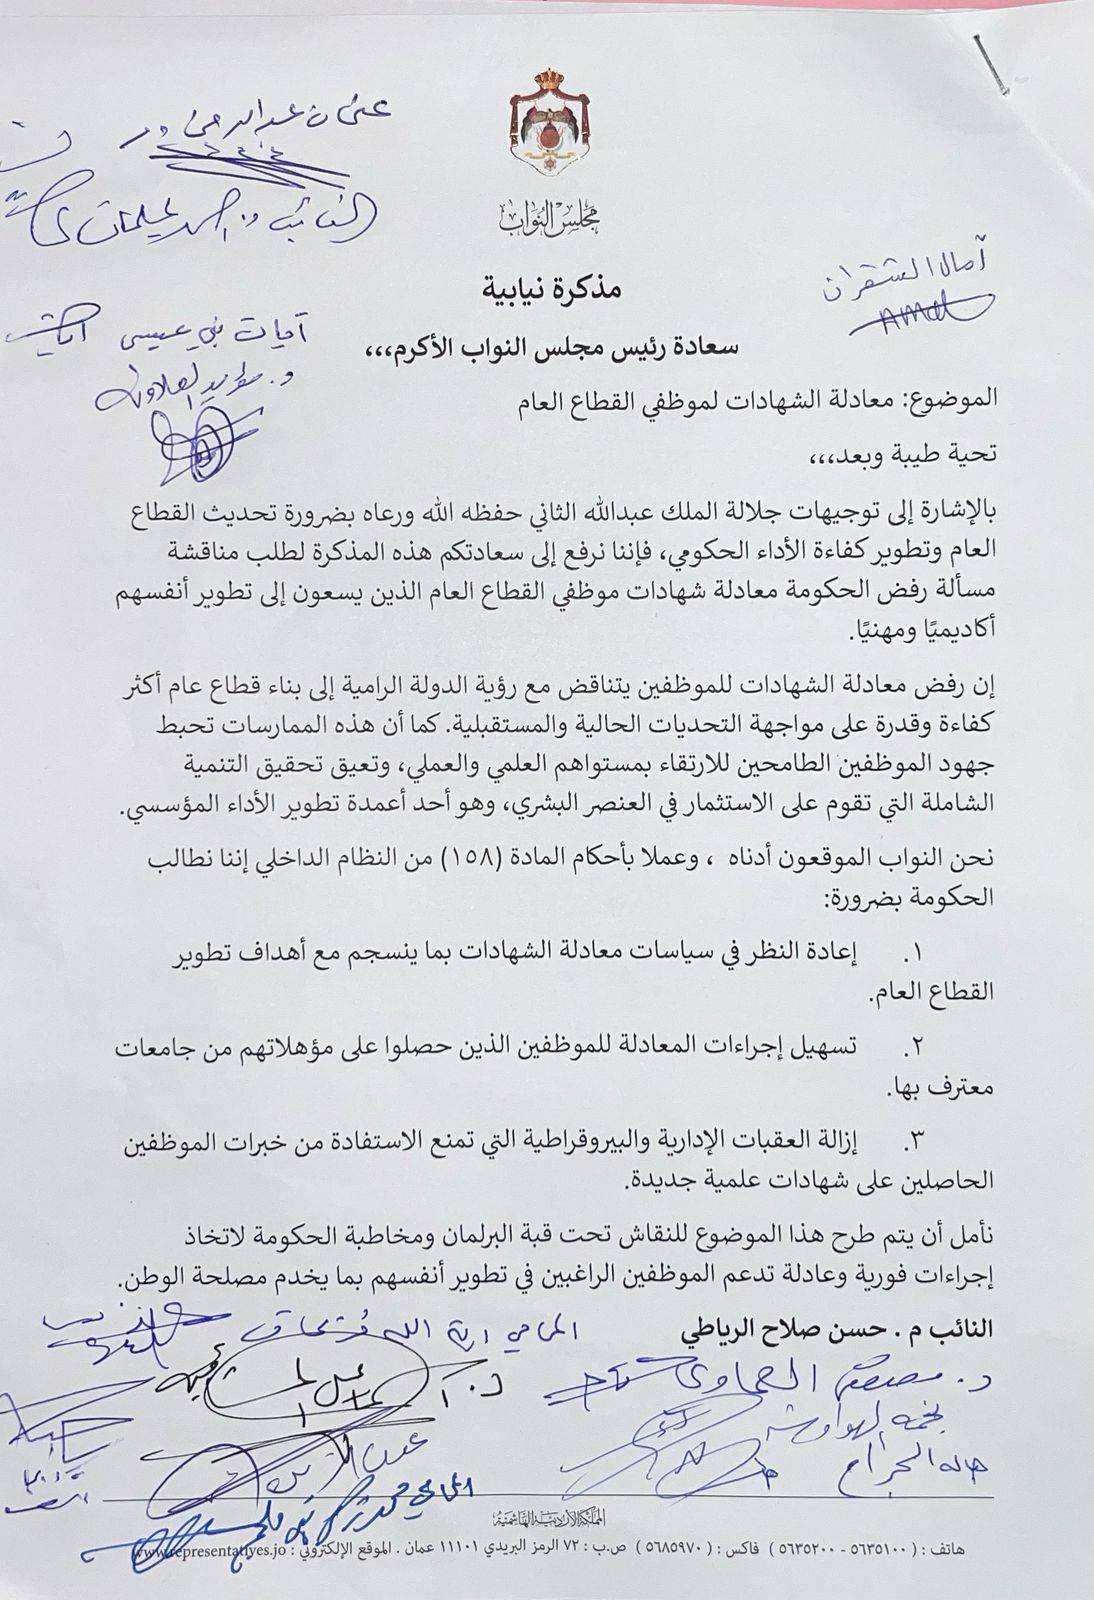 عثمان عبدالرحمن
مجلس النواب
آمال الشقران
Amal
مذكرة نيابية
آيات بني عيسى
سعادة رئيس مجلس النواب الأكرم،،،
د. مؤيد العلاونه
الموضوع: معادلة الشهادات لموظفي القطاع العام
تحية طيبة وبعد،،،
بالإشارة إلى توجيهات جلالة الملك عبدالله الثاني حفظه الله ورعاه بضرورة تحديث القطاع
العام وتطوير كفاءة الأداء الحكومي، فإننا نرفع إلى سعادتكم هذه المذكرة لطلب مناقشة
مسألة رفض الحكومة معادلة شهادات موظفي القطاع العام الذين يسعون إلى تطوير أنفسهم
أكاديميًا ومهنيًا.
إن رفض معادلة الشهادات للموظفين يتناقض مع رؤية الدولة الرامية إلى بناء قطاع عام أكثر
كفاءة وقدرة على مواجهة التحديات الحالية والمستقبلية. كما أن هذه الممارسات تحبط
جهود الموظفين الطامحين للارتقاء بمستواهم العلمي والعملي، وتعيق تحقيق التنمية
الشاملة التي تقوم على الاستثمار في العنصر البشري، وهو أحد أعمدة تطوير الأداء المؤسسي.
نحن النواب الموقعون أدناه ، وعملا بأحكام المادة (١٥٨) من النظام الداخلي إننا نطالب
الحكومة بضرورة:
١. إعادة النظر في سياسات معادلة الشهادات بما ينسجم مع أهداف تطوير
القطاع العام.
٢. تسهيل إجراءات المعادلة للموظفين الذين حصلوا على مؤهلاتهم من جامعات
معترف بها.
٣. إزالة العقبات الإدارية والبيروقراطية التي تمنع الاستفادة من خبرات الموظفين
الحاصلين على شهادات علمية جديدة.
نأمل أن يتم طرح هذا الموضوع للنقاش تحت قبة البرلمان ومخاطبة الحكومة لاتخاذ
إجراءات فورية وعادلة تدعم الموظفين الراغبين في تطوير أنفسهم بما يخدم مصلحة الوطن.
النائب م . حسن صلاح الرياطي
المحامي اية الله فريحات
هاله الجراح
المملكة الأردنية الهاشمية
هاتف : ( ٥٦٣٥١٠٠ - ٥٦٣٥٢٠٠ ) فاكس : ( ٥٦٨٥٩٧٠ ) ص.ب : ٧٢ الرمز البريدي ١١١٠١ عمان . الموقع الإلكتروني : www.representatives.jo